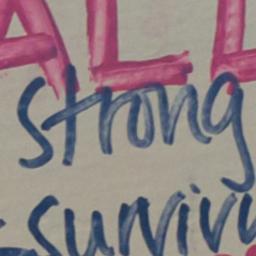 ALL
strong
surviv